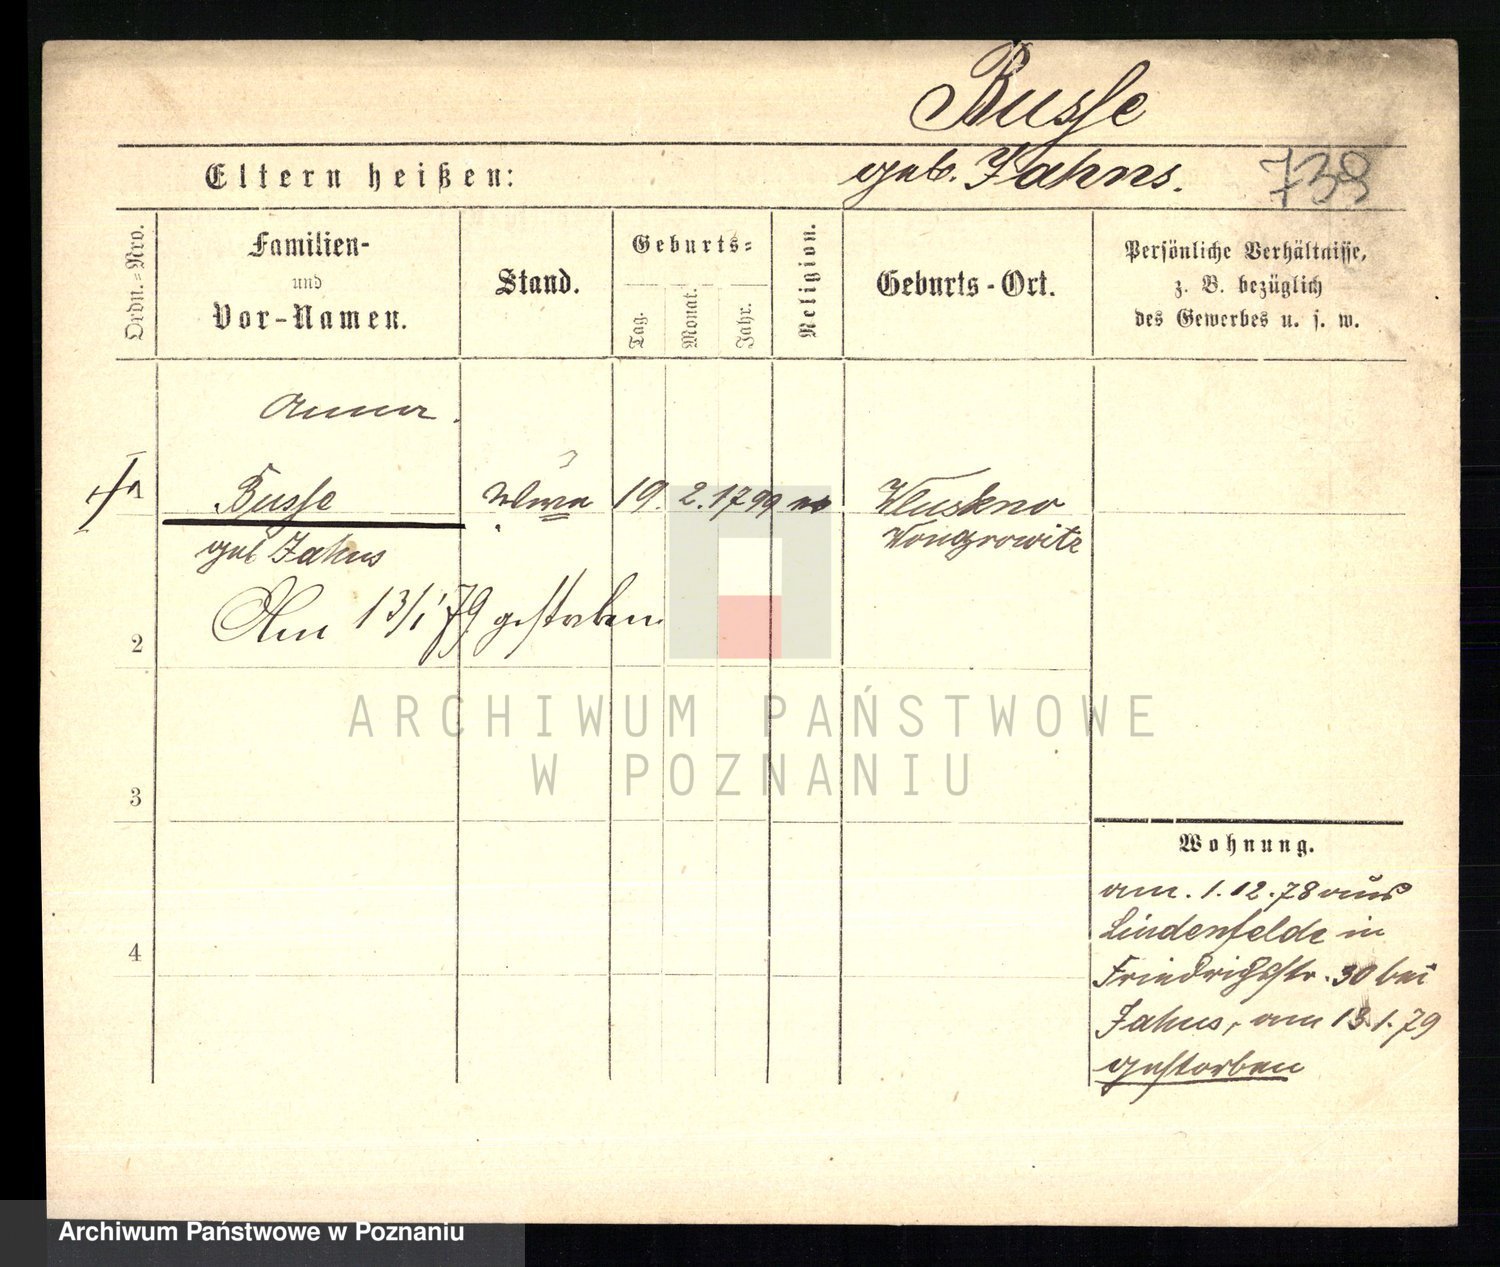 Busse
Eltern heißen:
geb. Jahns.
738
Ordn.=Nro.
Familien-
und
Vor-Namen.
Stand.
Geburts=
Tag.
Monat.
Jahr.
Religion.
Geburts-Ort.
Persönliche Verhältnisse,
z. B. bezüglich
des Gewerbes u. s. w.
Anna.
1
Busse
19. 2. 1799
geb Jahns
Wongrowitz
Am 13/1 79 gestorben
2
ARCHIWUM PAŃSTWOWE
W POZNANIU
3
Wohnung.
am. 1. 12. 78 aus
4
Lindenfelde in
Friedrichstr. 30 bei
Jahns, am 13.1.79
gestorben
Archiwum Państwowe w Poznaniu